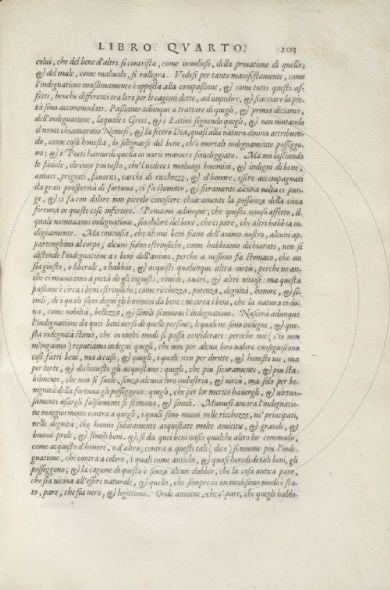 LIBRO QVARTO. 203
colui, che del bene d'altri si contrista, come inuidioso, della priuatione di quello,
& del male, come maluido, si rallegra. Vedesi per tanto manifestamente, come
l'indegnatione massimamente è opposta alla compassione, & come tutti questi af-
fetti, benche differenti tra loro per le cagioni dette, ad impedire, & scacciare la pie-
tà sono accommodati. Passiamo adunque a trattare di quegli, & prima diciamo,
dell'indegnatione, laquale i Greci, & i Latini seguendo quegli, & non mutando
il nome chiamarono Nemesi, & la fecero Dea, quasi alla natura diuina attribuen-
do, come cosa honesta, lo sdegnarsi del bene, ch'i mortali indegnamente posseggo-
no; & i Poeti hanno di quella in varie maniere fauoleggiato. Ma noi lasciando
le fauole, diremo
amati, pregiati, fauoriti, carchi di ricchezze, & d'honore, essere accompagnati
da gran prosperità di fortuna, ci fa stomaco, & fieramente alcuna volta ci pun-
ge, & ci fa con dolore non picciolo conoscere chiaramente la possanza della cieca
fortuna in queste cose inferiori. Poniamo adunque, che questo misto affetto, il
quale nominiamo indegnatione, sia dolore del bene, che ci pare, che altri habbia in-
degnamente. Ma conciosia, che alcuni beni siano dell'animo nostro, alcuni ap-
partenghino al corpo, alcuni siano estrinsechi, come habbiamo dichiarato, non si
distende l'indegnatione a i beni dell'animo, perche a nessuno fa stomaco, che un
sia giusto, o liberale, o habbia, & acquisti qualunque altra virtù, perche ne an-
che ci muouiamo a pietà de gli ingiusti, timidi, auari, & altri uitiosi: ma questa
passione è circa i beni estrinsechi; come ricchezza, potenza, dignità, honore, & si-
mili, de i quali sono degni gli huomini da bene: ne circa i beni, che la natura ci do-
na, come nobiltà, bellezza, & simili si muoue l'indegnatione. Nascerà adunque
l'indegnatione da quei beni uerso di quelle persone, lequali ne sono indegne, & que-
sta indegnità stimo, che in molti modi si possa considerare: peroche noi (s'io non
m'inganno) reputiamo indegni quegli, che non per alcun loro ualore conseguiscono
cosi fatti beni, ma a caso, & quegli, i quali non per diritte, & honeste uie, ma
per torte, & dishoneste gli acquistano: quegli, che piu sicuramente, & piu sta-
bilmente, che non si suole, senza alcuna loro industria, & uirtù, ma solo per be-
nignità della fortuna gli posseggono: quegli, che per lor merito hauergli, & uirtuo-
samente usargli falsamenti si stimano, & simili. Muouesi ancora l'indegnatio-
ne maggiormente contra a quegli, i quali sono nuoui nelle ricchezze, ne' principati,
nelle dignità; che hanno subitamente acquistate molte amicitie, & grande, &
buona prole, & simili beni, & se da quei beni nasce qualche altro lor commodo,
come acquisto d'honore, o d'altro; contra a questi tali (dico) si muoue piu l'inde-
gnatione, che contra a coloro, i quali come antichi, & quasi heredi de tali beni, gli
posseggono; & la cagione di questo è senza alcun dubbio, che la cosa antica pare,
che sia uicina all'essere naturale, & quello, che sempre in un medesimo modo è sta-
to, pare, che sia uero, & legittimo. Onde auuiene, che e' pare, che quegli habbi-